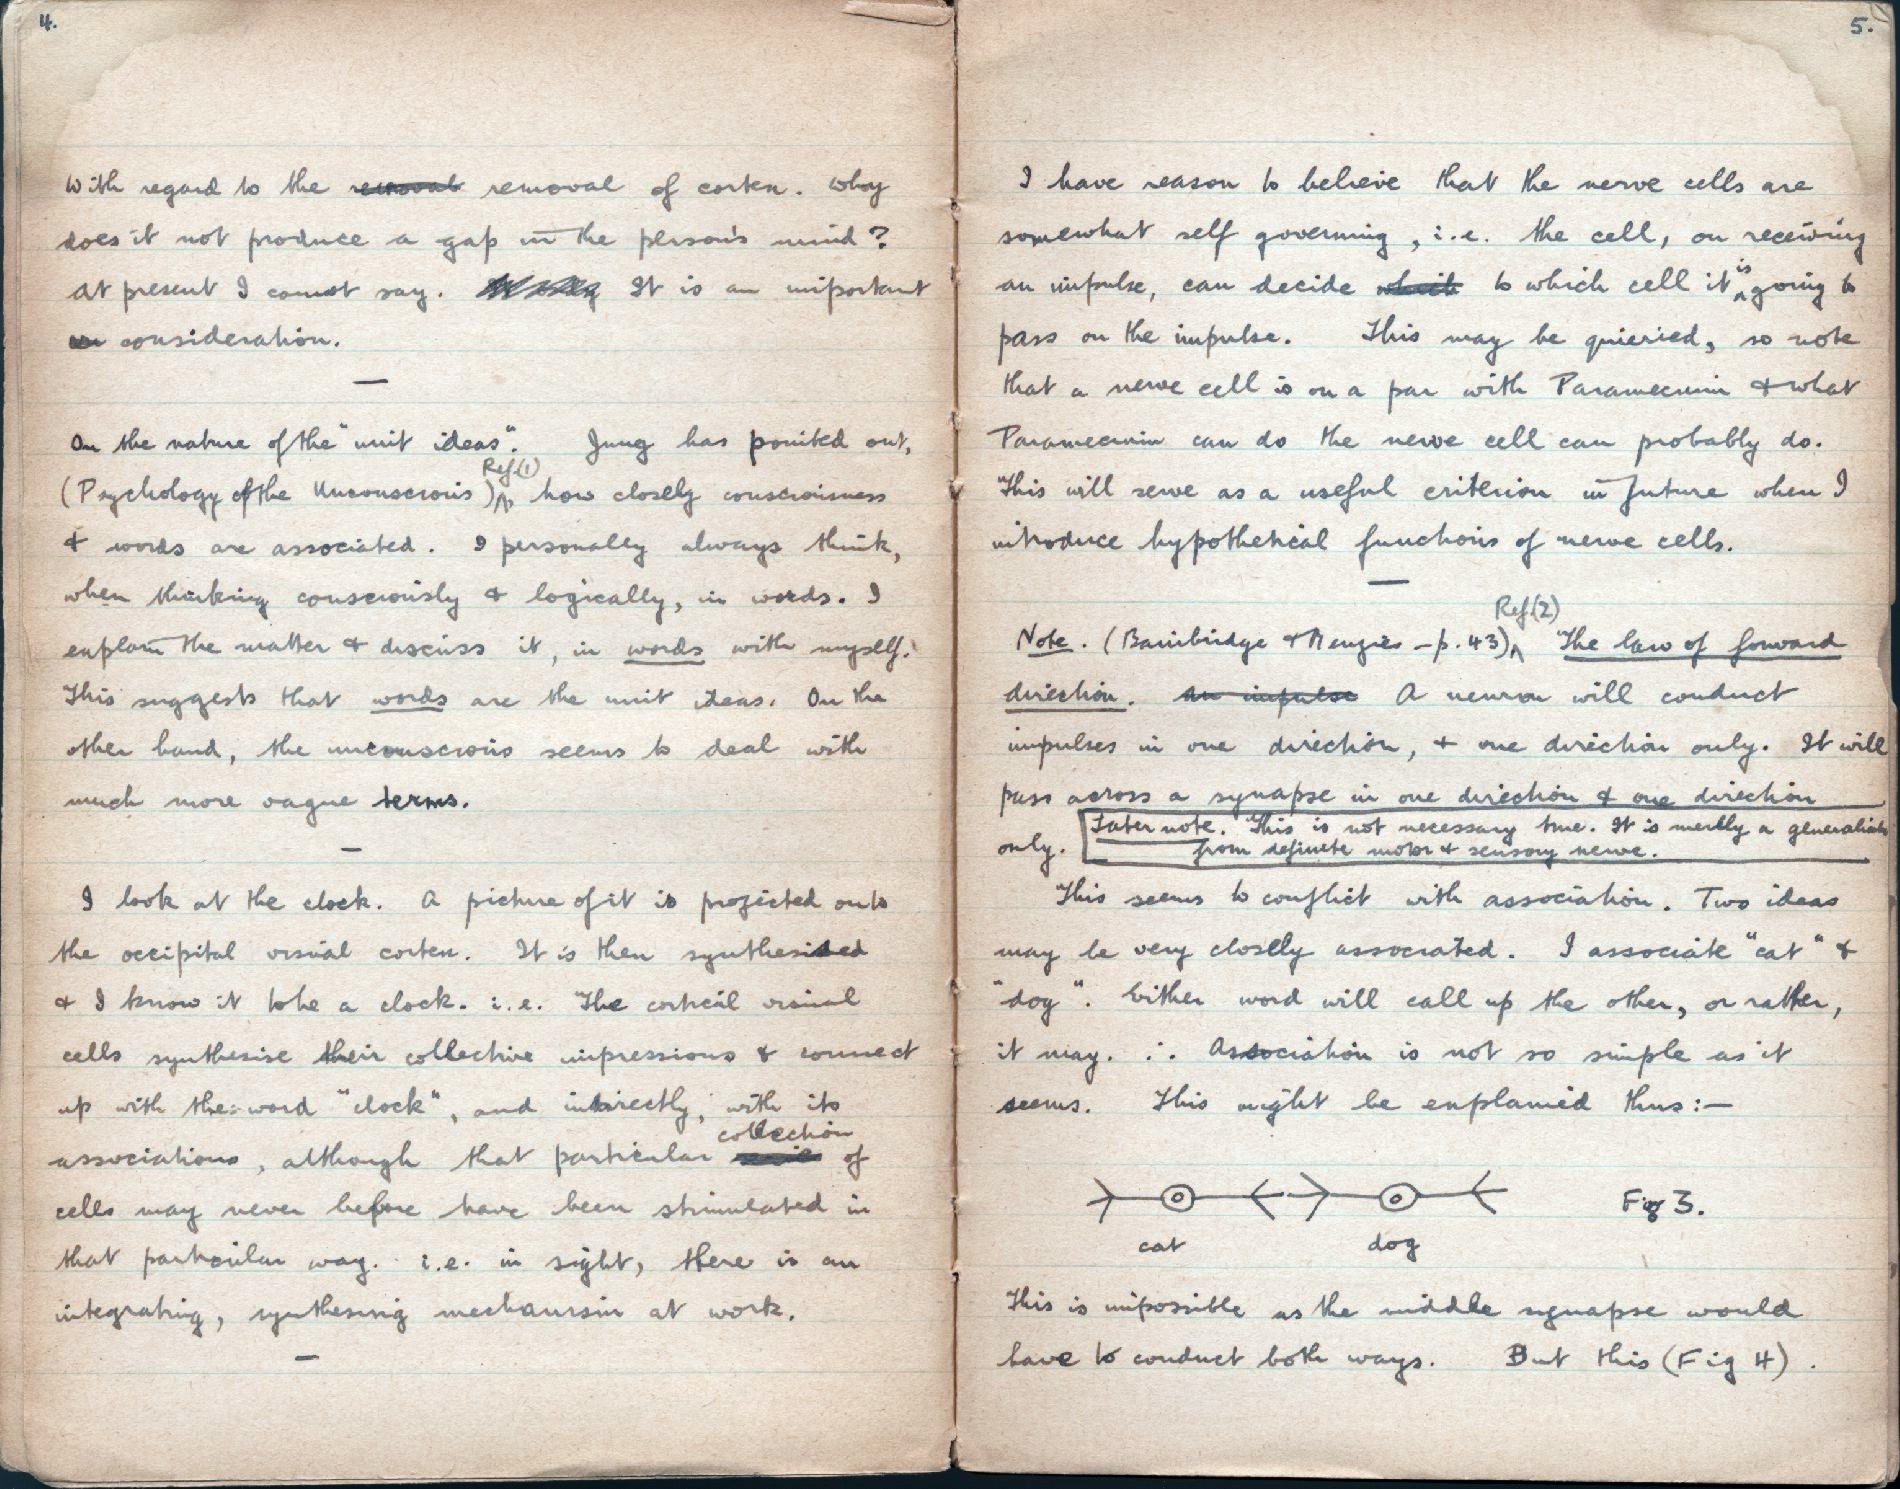 4.
With regard to the removal removal of cortex. Why
does it not produce a gap in the person's mind?
At present I cannot say. It is an important
an consideration.
—
On the nature of the "unit ideas". Jung has pointed out,
(Psychology of the Unconscious) Ref.(1) how closely consciousness
& words are associated. I personally always think,
when thinking consciously & logically, in words. I
explain the matter & discuss it, in words with myself.
This suggests that words are the unit ideas. On the
other hand, the unconscious seems to deal with
much more vague terms.
—
I look at the clock. A picture of it is projected onto
the occipital visual cortex. It is then synthesised
& I know it to be a clock. i.e. The corticil visual
cells synthesise their collective impressions & connect
up with the word "clock", and indirectly, with its
associations, although that particular collection of
cells may never before have been stimulated in
that particular way. i.e. in sight, there is an
integrating, synthesing mechanism at work.
—
5.
I have reason to believe that the nerve cells are
somewhat self governing, i.e. the cell, on receiving
an impulse, can decide which to which cell it is going to
pass on the impulse. This may be quieried, so note
that a nerve cell is on a par with Paramecium & what
Paramecium can do the nerve cell can probably do.
This will serve as a useful criterion in future when I
introduce hypothetical functions of nerve cells.
—
Note. (Bainbridge & Menzies - p. 43) Ref.(2) The law of forward
direction. an impulse A neuron will conduct
impulses in one direction, & one direction only. It will
pass across a synapse in one direction & one direction
only.
Later note. This is not necessary true. It is merely a generalisation
from definite motor & sensory nerve.
This seems to conflict with association. Two ideas
may be very closely associated. I associate "cat" &
"dog". Either word will call up the other, or rather,
it may. ∴ Association is not so simple as it
seems. This might be explained thus:—
Fig 3.
cat dog
This is impossible as the middle synapse would
have to conduct both ways. But this (Fig 4).